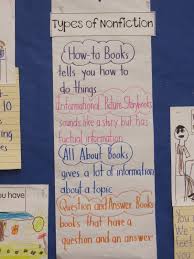 Types of Nonfiction
How-to Books
tells you how to
do things
Informational Picture Storybooks
sounds like a story but has
factual information
All About Books
gives a lot of information
about a topic
Question and Answer Books
books that have a
question and an answer
you have